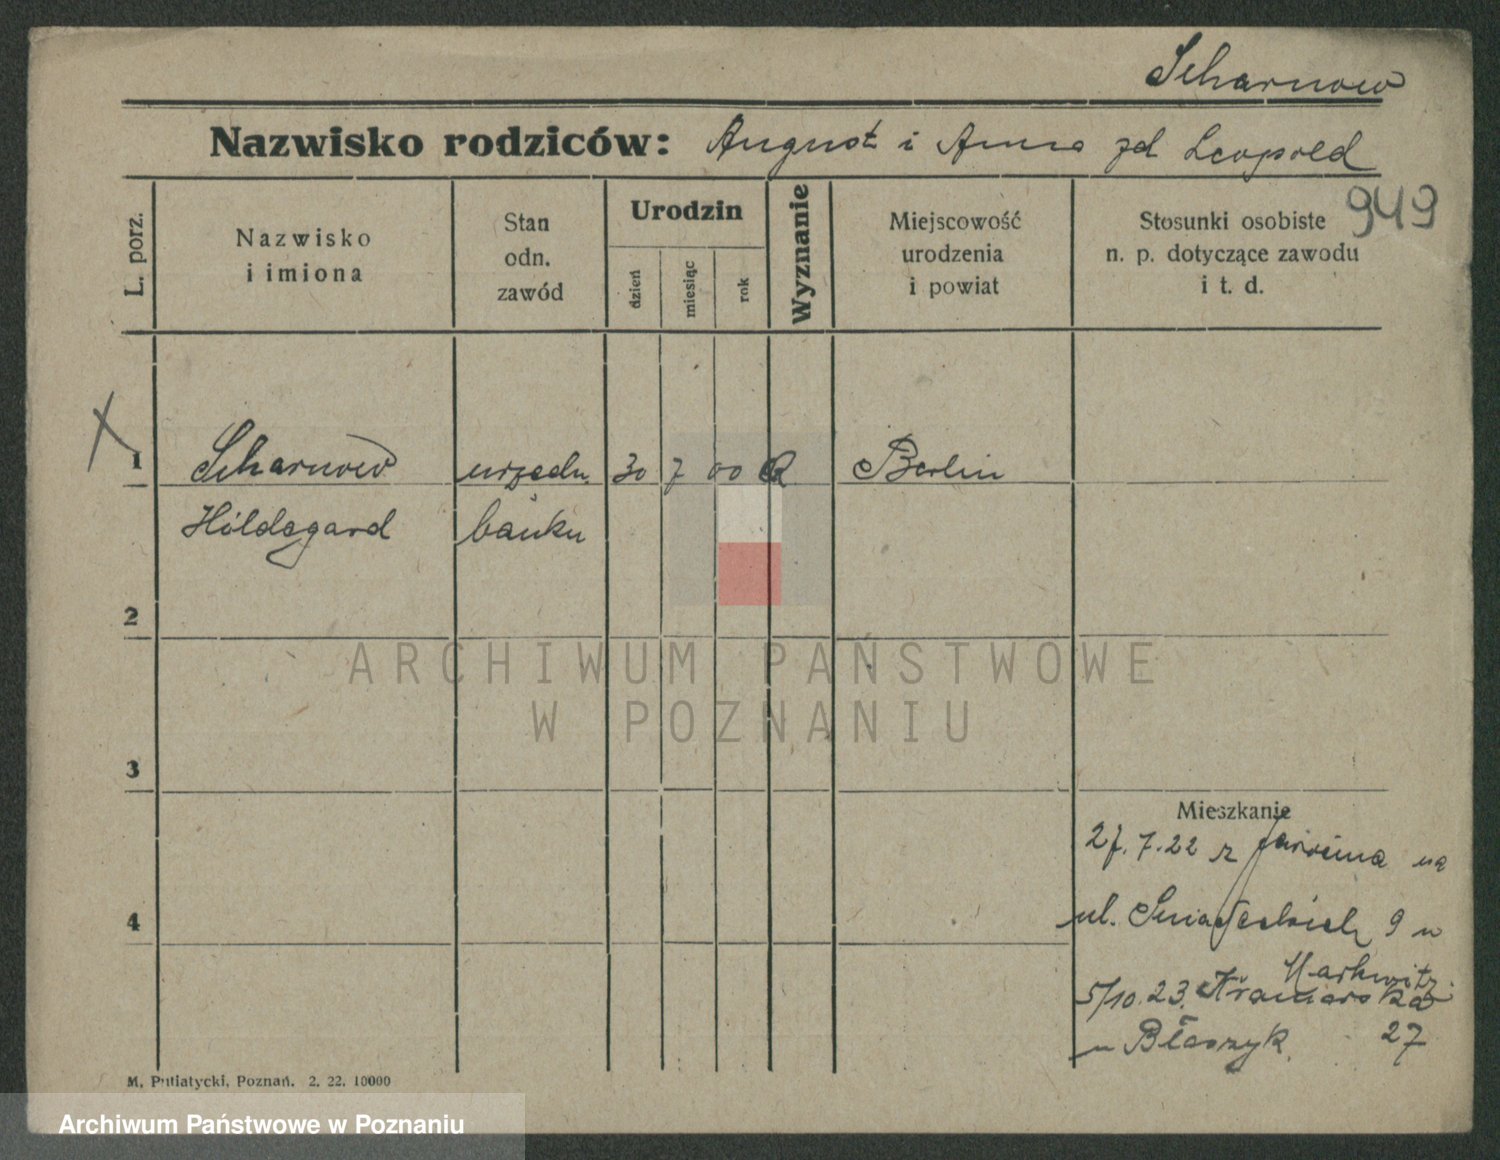 Scharnow
Nazwisko rodziców: August i Anna zd Leopold
949
L. porz.
Nazwisko
i imiona
Stan
odn.
zawód
Urodzin
dzień
miesiąc
rok
Wyznanie
Miejscowość
urodzenia
i powiat
Stosunki osobiste
n. p. dotyczące zawodu
i t. d.
1 Scharnow urzędn. 30 7 00 Berlin
Hildegard banku
2
3
4
Mieszkanie
27.7.22 z Jarocina na
ul. Śniadeckich 9 u
Markwitz
5/10.23. Kramarska
u Błaszyk 27
M. Putiatycki, Poznań. 2. 22. 10000
ARCHIWUM PAŃSTWOWE
W POZNANIU
Archiwum Państwowe w Poznaniu